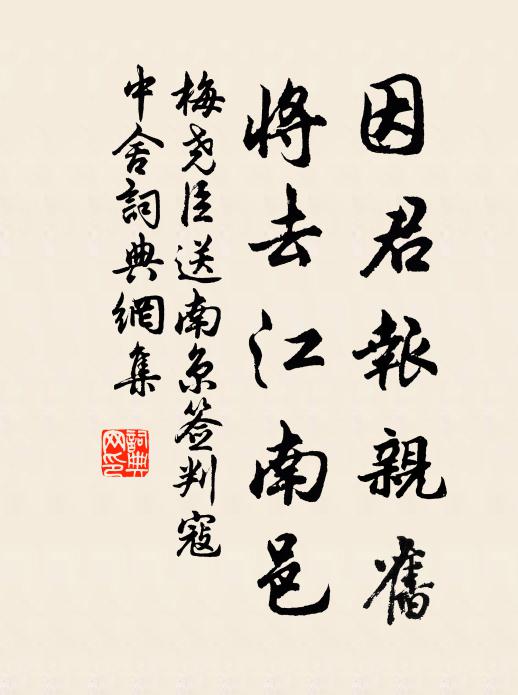 因君報親舊
將去江南邑
梅尧臣送南京签判寇
中舍詞典網集
詞典
网印